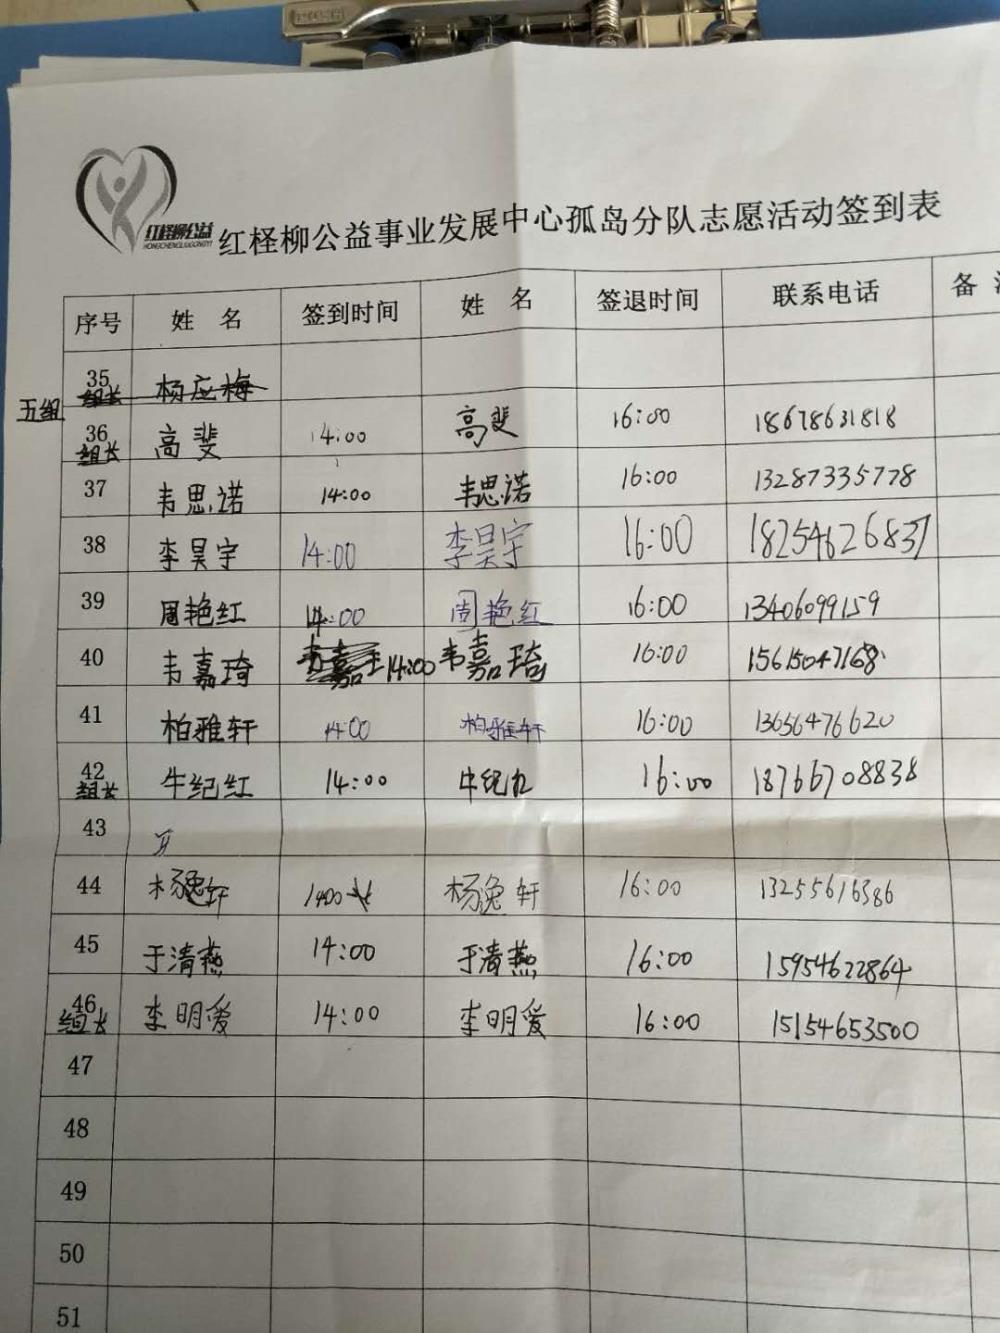 红柽柳公益
HONGCHENGLIUGONGYI
红柽柳公益事业发展中心孤岛分队志愿活动签到表
序号 姓名 签到时间 姓名 签退时间 联系电话 备
35 组长 杨应梅
五组
36 组长 高斐 14:00 高斐 16:00 18678631818
37 韦思诺 14:00 韦思诺 16:00 13287335778
38 李昊宇 14:00 李昊宇 16:00 18254626837
39 周艳红 14:00 周艳红 16:00 13406099159
40 韦嘉琦 14:00 韦嘉琦 16:00 15615047168
41 柏雅轩 14:00 柏雅轩 16:00 13656476620
42 组长 牛纪红 14:00 牛纪红 16:00 18766708838
43
44 杨逸轩 1400 杨逸轩 16:00 13255616386
45 于清燕 14:00 于清燕 16:00 15954622864
46 组长 李明爱 14:00 李明爱 16:00 15154653500
47
48
49
50
51